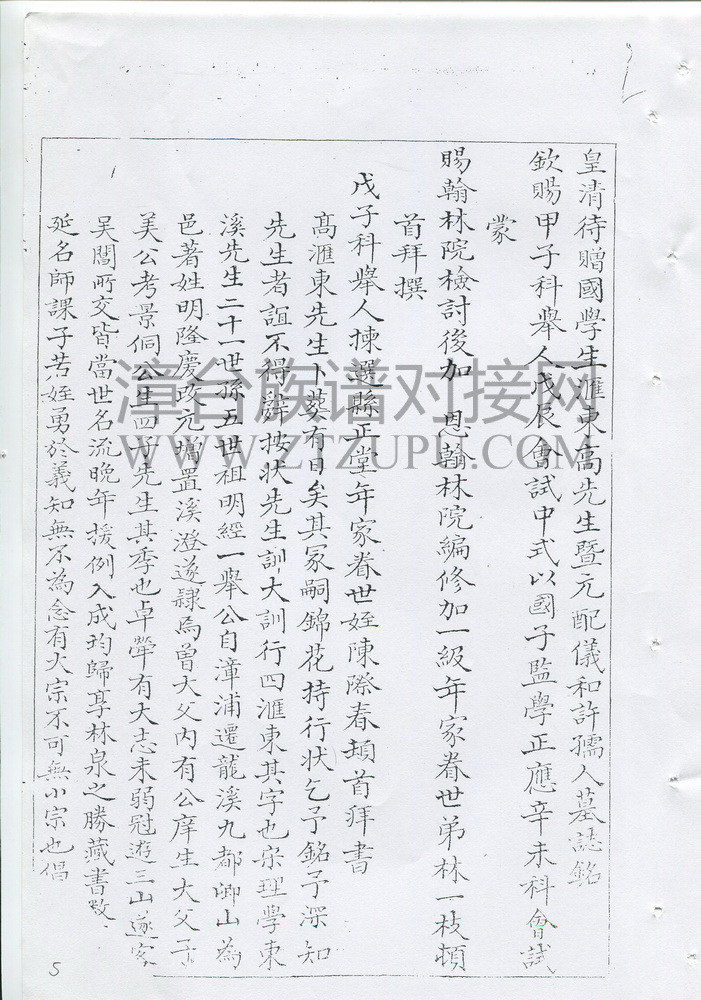 皇清待贈國學生滙東高先生暨元配儀和許孺人墓誌銘
欽賜甲子科舉人戊辰會試中式以國子監學正應辛未科會試
蒙
賜翰林院檢討後加 恩翰林院編修加一級年家眷世弟林一枝頓
首拜撰
戊子科舉人揀選縣正堂年家眷世姪陳際春頓首拜書
高滙東先生卜葬有日矣其冢嗣錦花持行状乞予銘予深知
先生者誼不得辭按状先生訓大訓行四滙東其字也宗理學東
溪先生二十一世孫五世祖明經一舉公自漳浦遷龍溪九都卿山為
邑著姓明隆慶改元增置溪澄遂隸焉曾大父内有公庠生大父子
美公考景侗公生四子先生其季也卓犖有大志未弱冠遊三山遂客
吳閶所交皆當世名流晚年援例入成均歸享林泉之勝藏書教
延名師課子若姪勇於義知無不為念有大宗不可無小宗也倡
漳台族谱对接网
WWW.ZTZUPU.COM
5